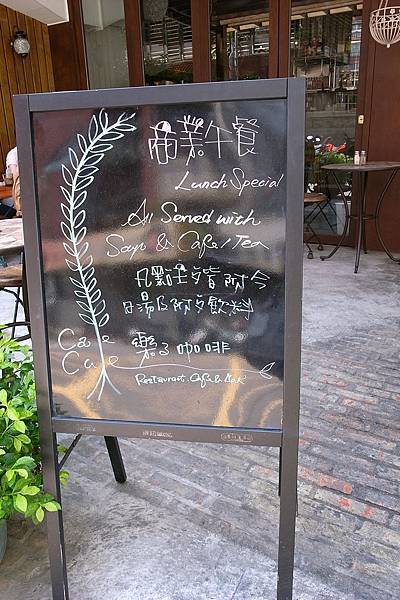 商業午餐
Lunch Special
All Served with
Soup & Cafe/Tea
凡點主餐皆附今
日湯及附餐飲料
Cafe 樂子咖啡
Cue
Restaurant. Cafe & Bar